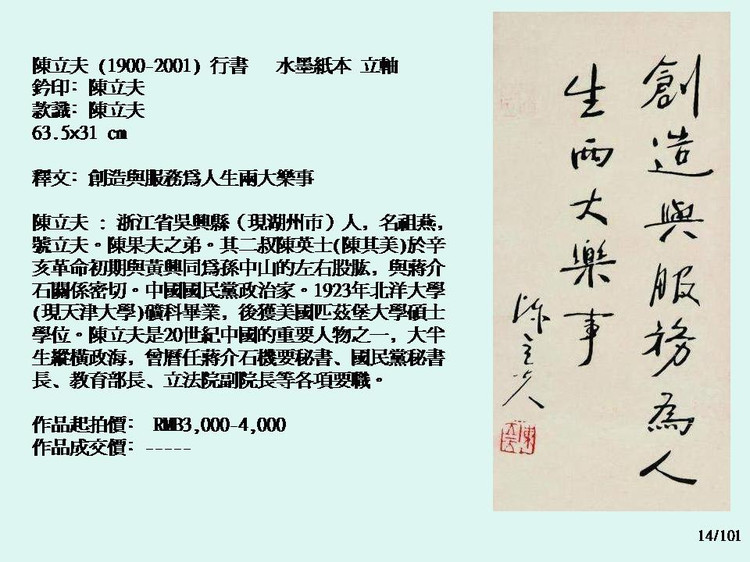 陳立夫 (1900-2001) 行書 水墨紙本 立軸
鈐印: 陳立夫
款識: 陳立夫
63.5x31 cm
釋文: 創造與服務為人生兩大樂事
陳立夫 : 浙江省吳興縣（現湖州市）人，名祖燕，
號立夫。陳果夫之弟。其二叔陳英士(陳其美)於辛
亥革命初期與黃興同為孫中山的左右股肱，與蔣介
石關係密切。中國國民黨政治家。1923年北洋大學
(現天津大學)礦科畢業，後獲美國匹茲堡大學碩士
學位。陳立夫是20世紀中國的重要人物之一，大半
生縱橫政海，曾曆任蔣介石機要秘書、國民黨秘書
長、教育部長、立法院副院長等各項要職。
作品起拍價: RMB3,000-4,000
作品成交價: -----
創造與服務為人
生兩大樂事
陳立夫
14/101